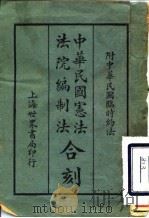 附中華民國臨時約法
中華民國憲法
法院編制法
合刻
上海世界書局印行